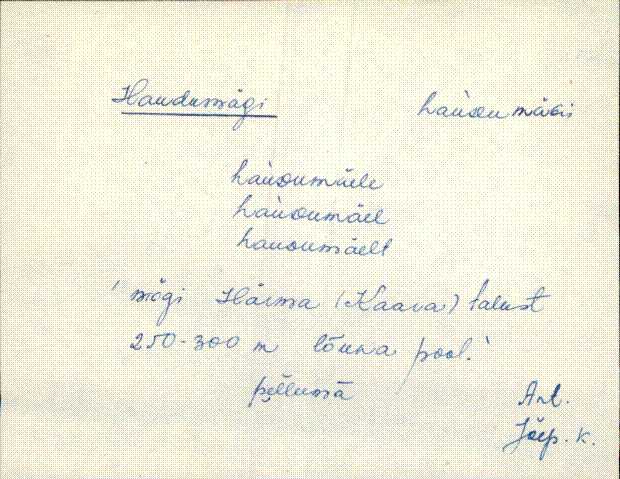 Haudumägi hàùdumäGi
hàùdumäele
hàùdumäel
haudumäelt
'mägi Härma (Kaava) talust
250-300 m lõuna pool.'
põllumä
Ant.
Jõep. k.